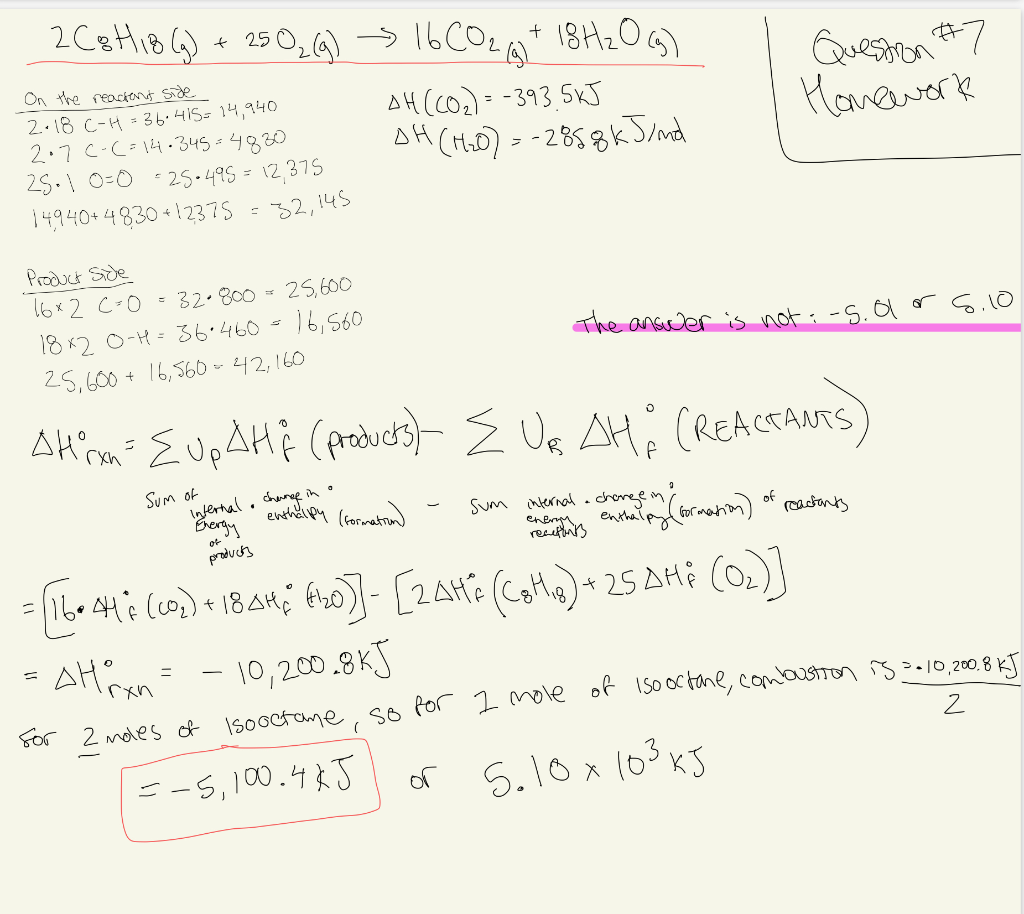 2C8H18(g) + 25O2(g) → 16CO2(g) + 18H2O(g)
Question #7
Homework
On the reactant side
2·18 C-H = 36·415 = 14,940
2·7 C-C = 14·345 = 4830
25·1 O=O = 25·495 = 12,375
14,940 + 4830 + 12375 = 32,145
ΔH(CO2) = -393.5kJ
ΔH(H2O) = -285.8kJ/mol
Product Side
16×2 C=O = 32·800 = 25,600
18×2 O-H = 36·460 = 16,560
25,600 + 16,560 = 42,160
The answer is not: -5.01 or 5.10
ΔH°rxn = Σ Up ΔH°f (products) - Σ UR ΔH°f (REACTANTS)
Sum of internal Energy of products · change in enthalpy° (formation) - sum internal energy reactants · change in enthalpy° (formation) of reactants
= [16·ΔH°f (CO2) + 18ΔH°f (H2O)] - [2ΔH°f (C8H18) + 25ΔH°f (O2)]
= ΔH°rxn = -10,200.8kJ
For 2 moles of isooctane, so for 1 mole of isooctane, combustion is = -10,200.8kJ / 2
= -5,100.4kJ or 5.10 × 10³ kJ